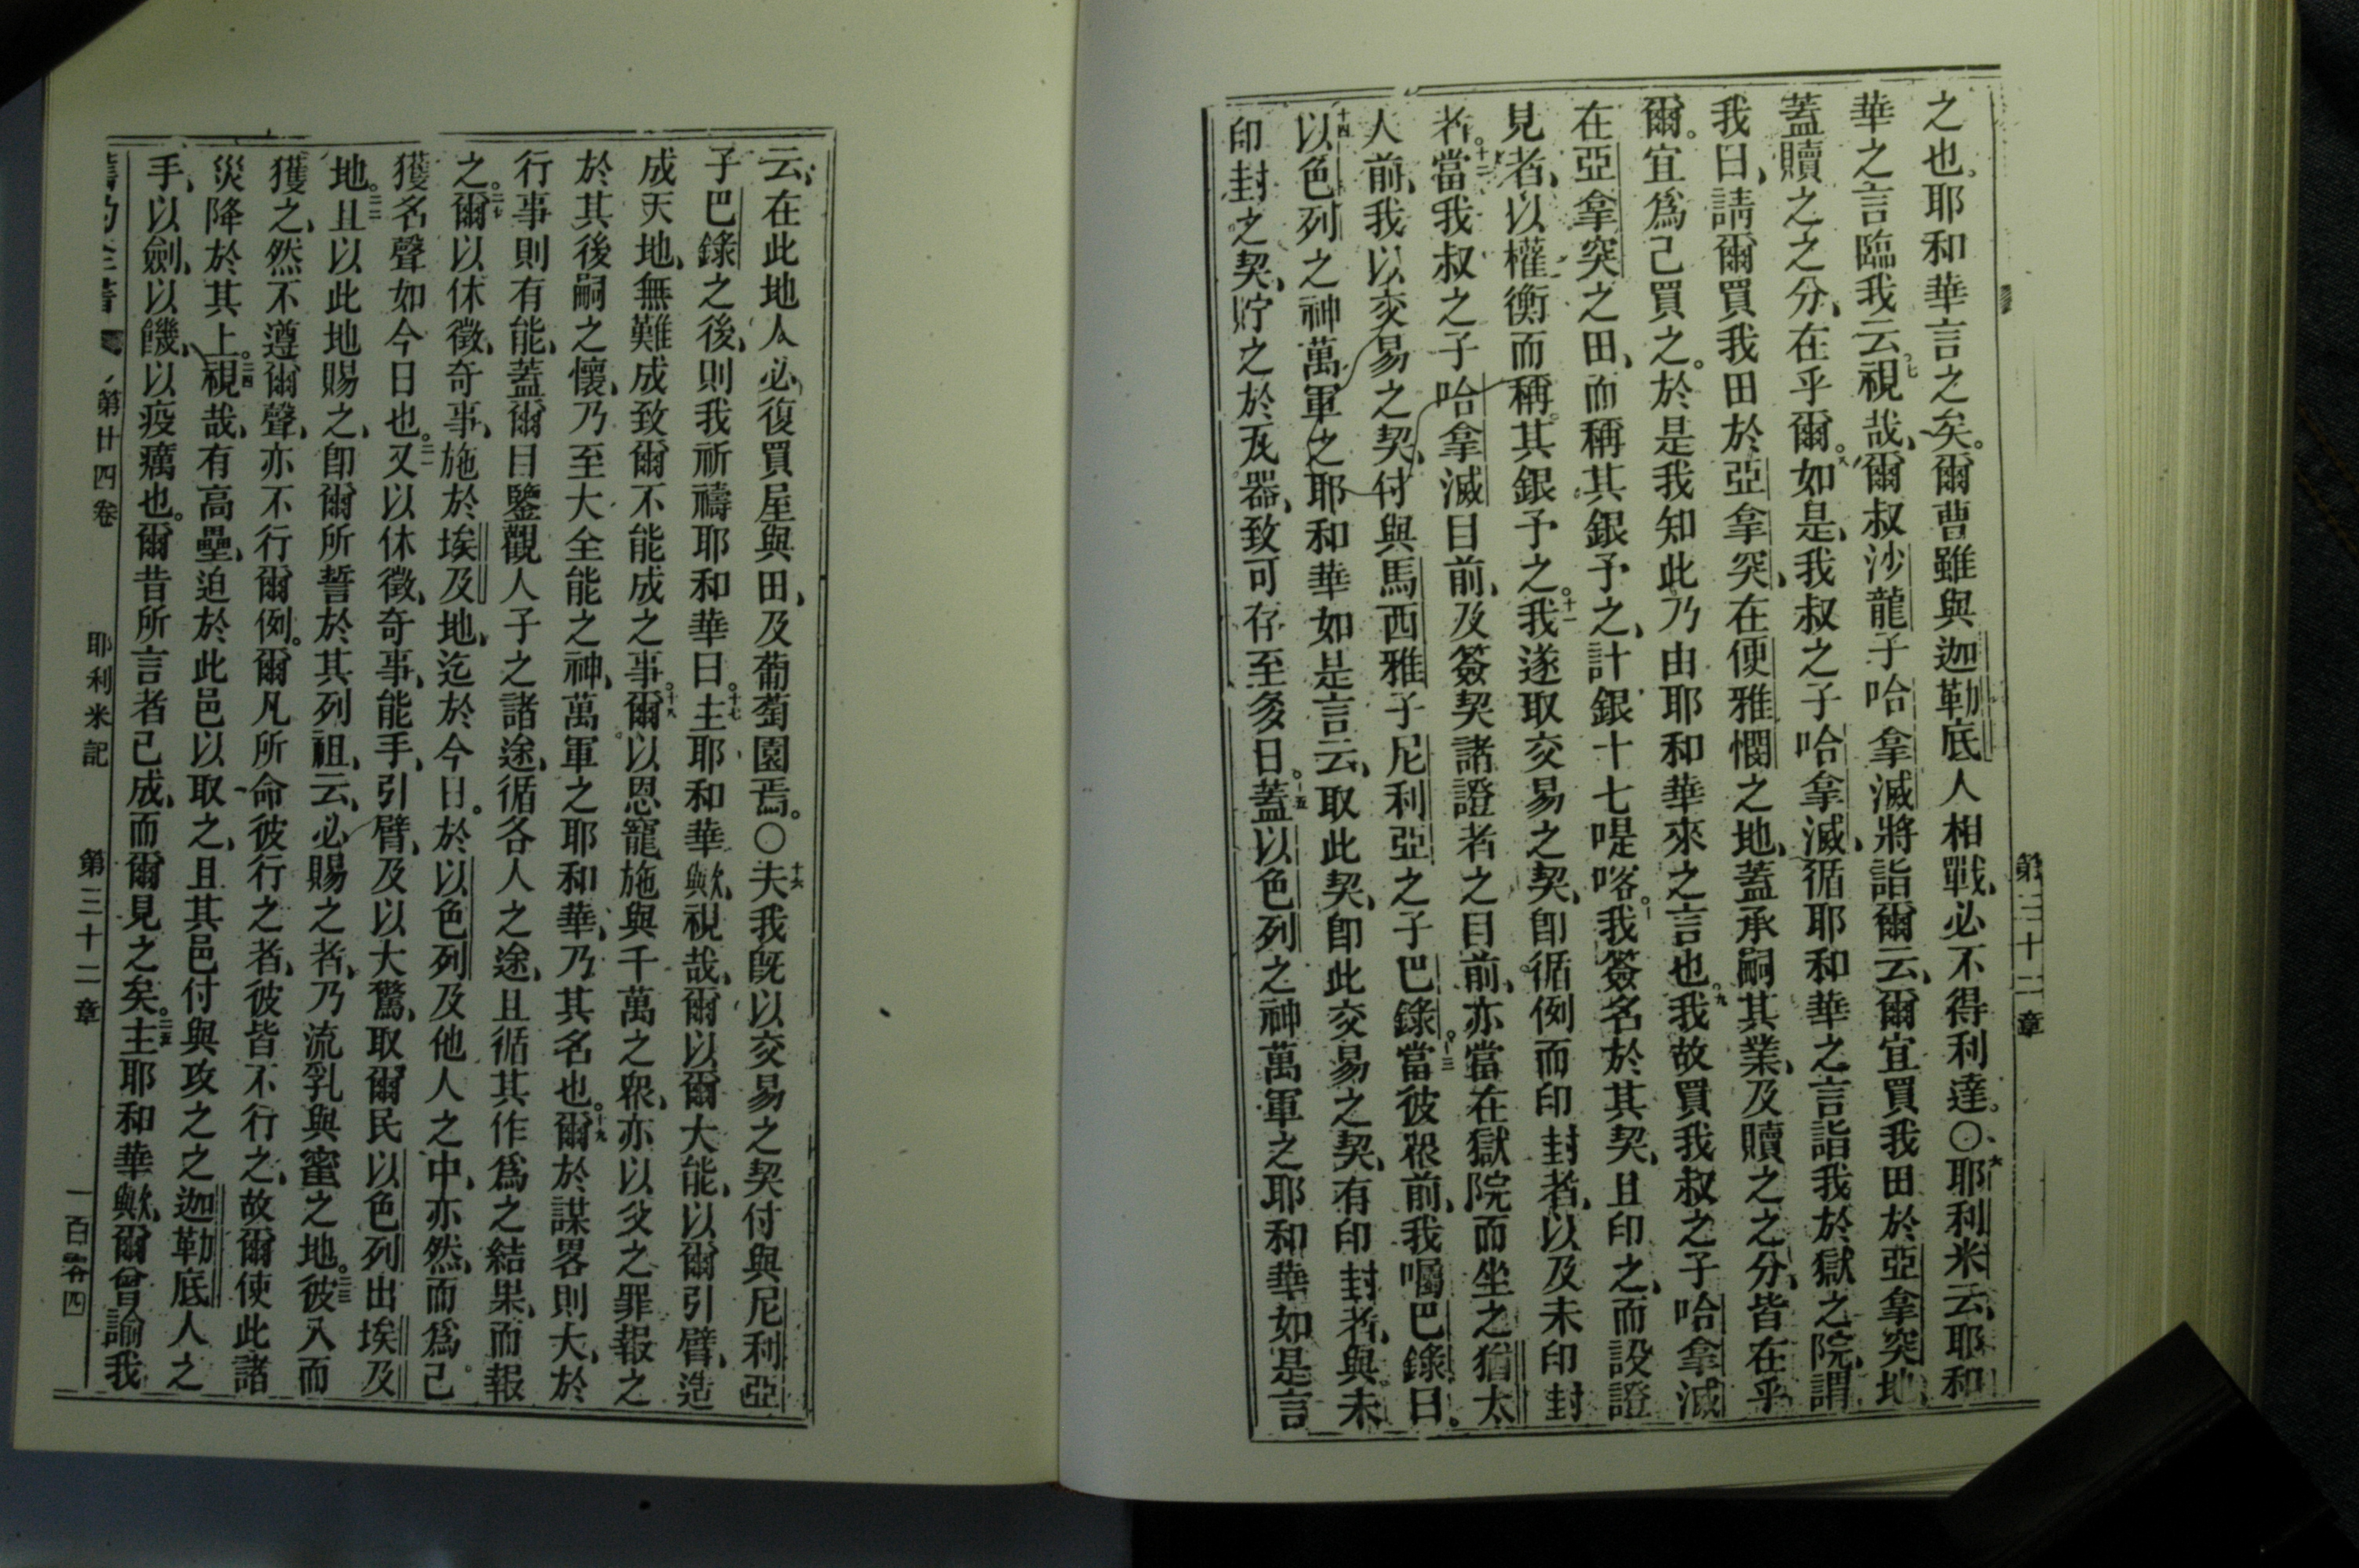 第三十二章
之也。耶和華言之矣。爾曹雖與迦勒底人相戰、必不得利達。〇六耶利米云、耶和
華之言臨我云、七視哉、爾叔沙龍子哈拿滅將詣爾云、爾宜買我田於亞拿突地、
蓋贖之之分、在乎爾。八如是、我叔之子哈拿滅、循耶和華之言詣我於獄之院、謂
我曰、請爾買我田於亞拿突、在便雅憫之地、蓋承嗣其業、及贖之之分、皆在乎
爾。宜爲己買之。於是我知此乃由耶和華來之言也。九我故買我叔之子哈拿滅
在亞拿突之田、而稱其銀予之、計銀十七㖷㗉。我簽名於其契、且印之、而設證
見者、以權衡而稱其銀予之。十一我遂取交易之契、卽循例而印封者、以及未印封
者。十二當我叔之子哈拿滅目前、及簽契諸證者之目前、亦當在獄院而坐之猶太
人前、我以交易之契、付與馬西雅子尼利亞之子巴錄。十三當彼衆前、我囑巴錄曰。
十四以色列之神萬軍之耶和華如是言云、取此契、卽此交易之契、有印封者、與未
印封之契、貯之於瓦器、致可存至多日。十五蓋以色列之神萬軍之耶和華如是言
云、在此地人必復買屋與田、及葡萄園焉。〇十六夫我旣以交易之契付與尼利亞
子巴錄之後、則我祈禱耶和華曰。十七主耶和華歟、視哉、爾以爾大能、以爾引臂、造
成天地、無難成致爾不能成之事。十八爾以恩寵施與千萬之衆、亦以父之罪報之
於其後嗣之懷、乃至大全能之神、萬軍之耶和華、乃其名也。十九爾於謀畧則大、於
行事則有能、蓋爾目鑒觀人子之諸途、循各人之途、且循其作爲之結果、而報
之。二十爾以休徵、奇事、施於埃及地、迄於今日。於以色列及他人之中、亦然、而爲己
獲名聲如今日也。二一又以休徵、奇事、能手、引臂、及以大驚、取爾民以色列出埃及
地。二二且以此地賜之、卽爾所誓於其列祖、云、必賜之者、乃流乳與蜜之地。二三彼入而
獲之、然不遵爾聲、亦不行爾例。爾凡所命彼行之者、彼皆不行之、故爾使此諸
災降於其上。二四視哉、有高壘、迫於此邑以取之、且其邑付與攻之之迦勒底人之
手、以劍、以饑、以疫癘也。爾昔所言者已成、而爾見之矣。二五主耶和華歟、爾曾諭我
舊約全書 第廿四卷 耶利米記 第三十二章 一百零四